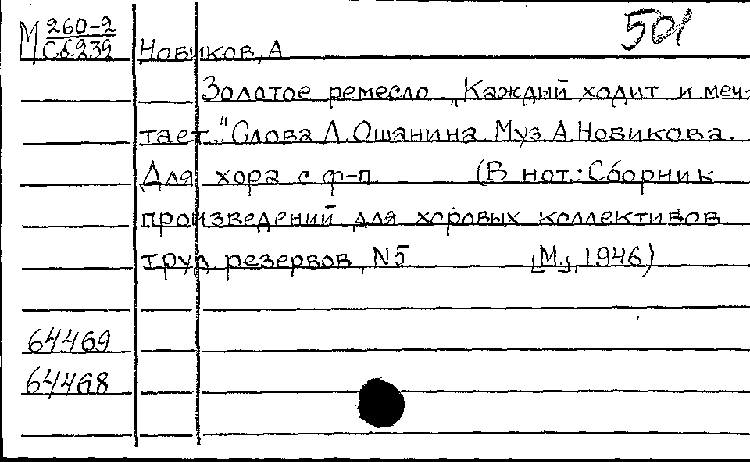 М 260-2 501
Сб239 Новиков, А
Золотое ремесло „Каждый ходит и меч-
тает." Слова Л. Ошанина. Муз. А. Новикова.
Для хора с ф-п (В нот.: Сборник
произведений для хоровых коллективов
труд. резервов, N5 [М.], 1946)
64469
64468